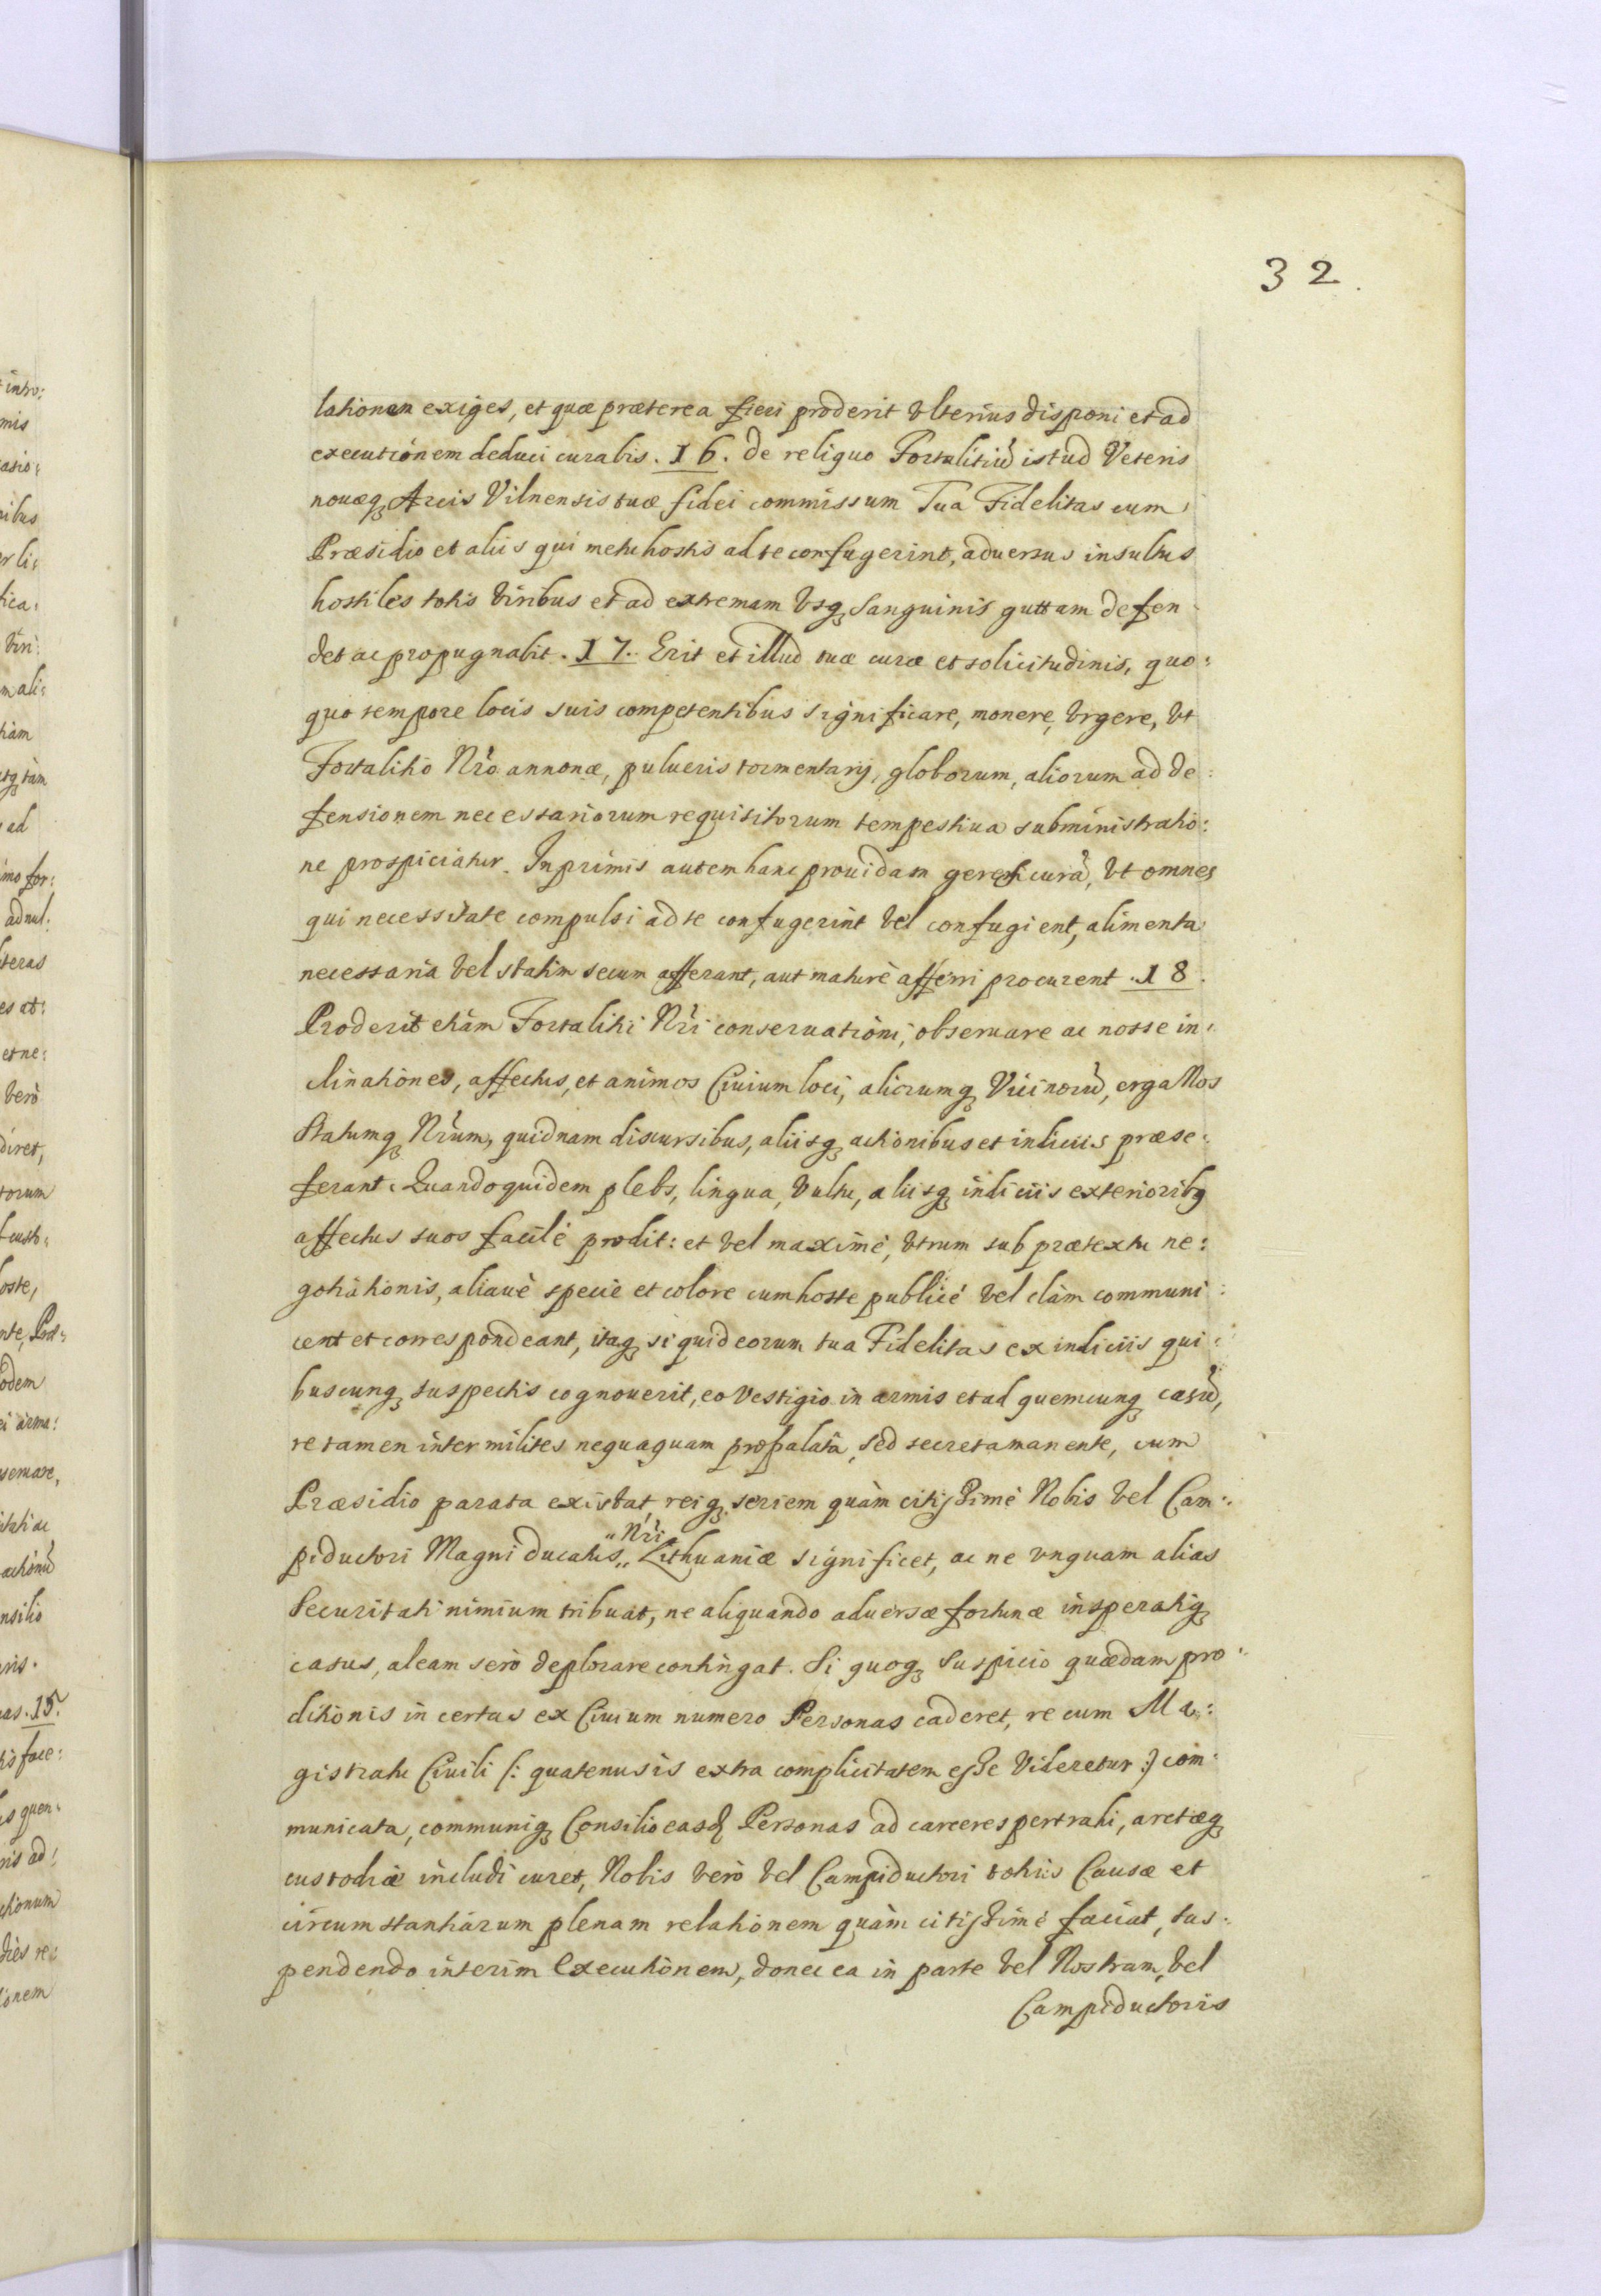 32
lationem exiges, et quæ præterea fieri proderit Vlterius disponi et ad
executionem deduci curabis. 16. De reliquo Fortalitiũ istud Veteris
nouæq; Arcis Vilnensis tuæ fidei commissum Tua Fidelitas cum
Præsidio et aliis qui metu hostis ad te confugerint, aduersus insultus
hostiles totis Viribus et ad extremam Vsq; Sanguinis guttam defen
det ac propugnabit. 17. Erit et illud tuæ curæ et solicitudinis, quo:
quo tempore locis suis competentibus significare, monere, Vrgere, Vt
Fortalitio Nr̃o annonæ, pulueris tormentarij, globorum, aliorum ad de:
fensionem necessariorum requisitorum tempestiua subministratio:
ne prospiciatur. Inprimis autem hanc prouidam geret curã, Vt omnes
qui necessitate compulsi ad te confugerint Vel confugient, alimenta
necessaria Vel statim secum afferant, aut maturè afferri procurent. 18.
Proderit etiàm Fortalitii Nr̃i conseruationi, obseruare ac nosse in:
clinationes, affectus, et animos Ciuium loci, aliorumq; Vicinorũ, erga Nos
Statumq; Nr̃um, quidnam discursibus, aliisq; actionibus et indiciis præse:
ferant. Quandoquidem plebs, lingua, Vultu, aliisq; indiciis exteriorib9
affectus suos facilè prodit: et Vel maximè, Vtrum sub prætextu ne:
gotiationis, aliauè specie et colore cum hoste publicè Vel clàm communi:
cent et correspondeant, itaq; si quid eorum tua Fidelitas ex indiciis qui:
buscunq; suspectis cognouerit, eo Vestigio in armis et ad quemcunq; casũ,
re tamen inter milites nequaquam propalata, sed secreta manente, cum
Præsidio parata existat, reiq; seriem quàm citissimè Nobis Vel Cam:
" Nr̃i
piductori Magni Ducatus „ Lithuaniæ significet, ac ne vnquam alias
Securitati nimium tribuat, ne aliquando aduersæ fortunæ insperatiq;
casus, aleam serò deplorare contingat. Si quoq; Suspicio quædam pro:
ditionis in certas ex Ciuium numero Personas caderet, re cum Ma:
gistratu Ciuili (: quatenus is extra complicitatem esse Videretur :) com:
municata, communiq; Consilio easd Personas ad carceres pertrahi, arctæq;
custodiæ includi curet, Nobis verò Vel Campiductori totius Causæ et
circumstantiarum plenam relationem quàm citissimè faciat, sus:
pendendo interim Executionem, donec ea in parte Vel Nostram, Vel
Campiductoris